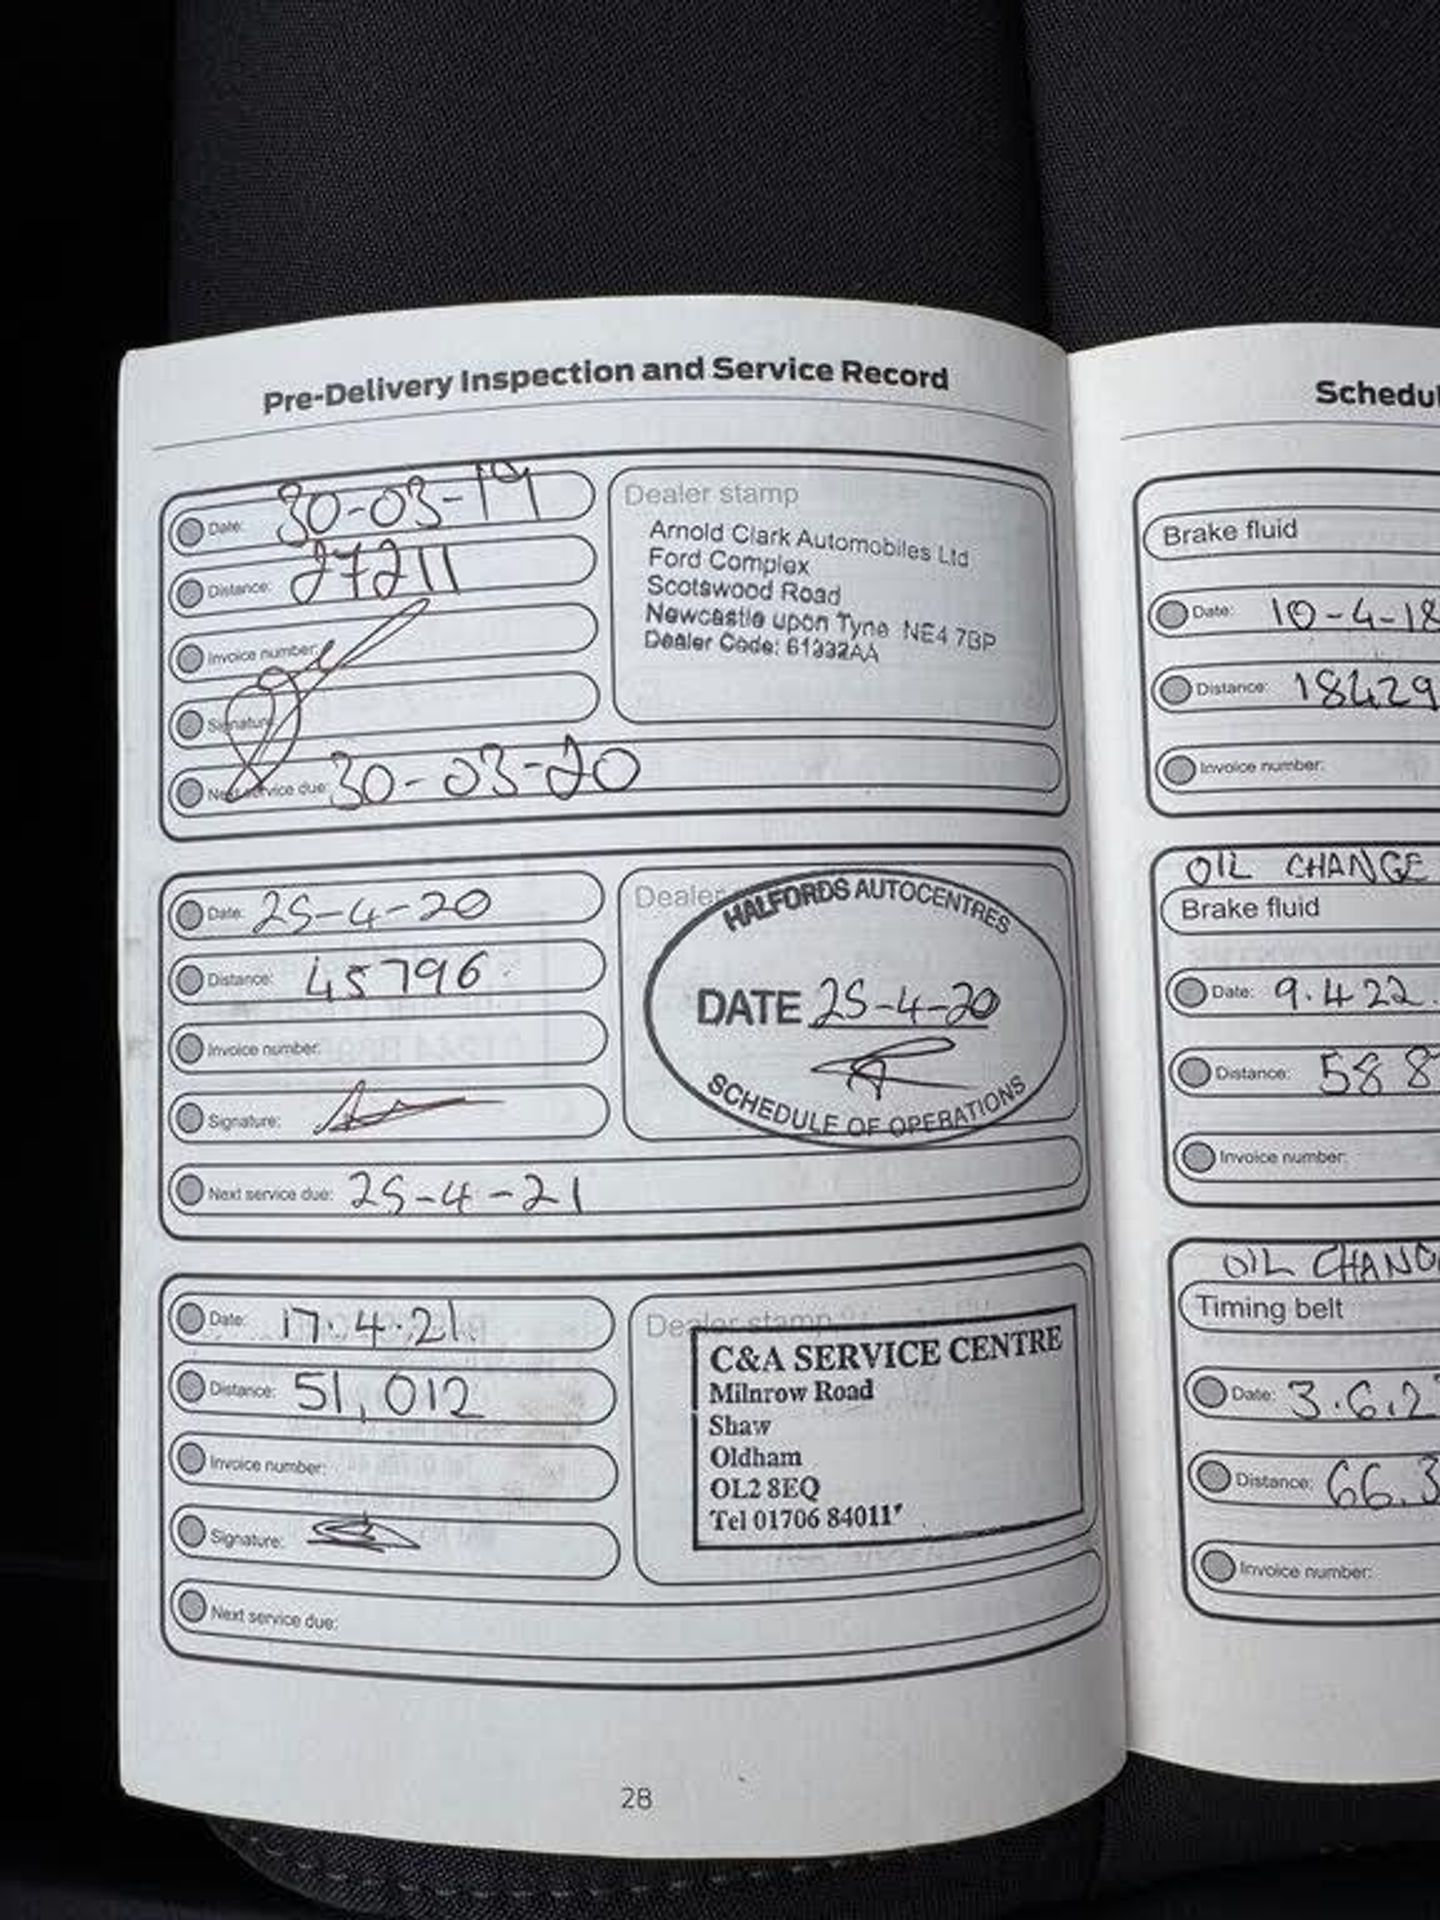 Pre-Delivery Inspection and Service Record
Date: 30-03-19
Distance: 27211
Invoice number:
Signature:
Next service due: 30-03-20
Dealer stamp
Arnold Clark Automobiles Ltd
Ford Complex
Scotswood Road
Newcastle upon Tyne NE4 7BP
Dealer Code: 61332AA
Date: 25-4-20
Distance: 45796
Invoice number:
Signature:
Next service due: 25-4-21
Dealer
HALFORDS AUTOCENTRES
DATE 25-4-20
SCHEDULE OF OPERATIONS
Date: 17.4.21
Distance: 51,012
Invoice number:
Signature:
Next service due:
Dealer stamp
C&A SERVICE CENTRE
Milnrow Road
Shaw
Oldham
OL2 8EQ
Tel 01706 84011
28
Schedul
Brake fluid
Date: 10-4-18
Distance: 18429
Invoice number:
OIL CHANGE
Brake fluid
Date: 9.4.22.
Distance: 588
Invoice number:
OIL CHANG
Timing belt
Date: 3.6.2
Distance: 66.3
Invoice number: